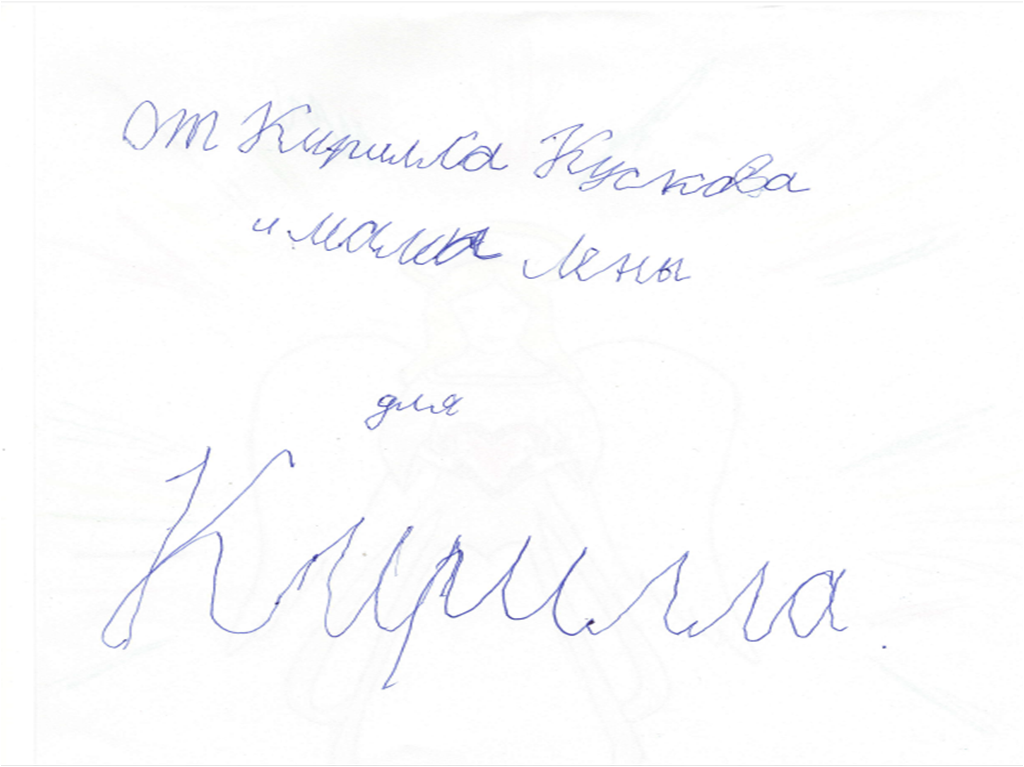 от Кирилла Кускова
и мамы Лены
для
Кирилла.